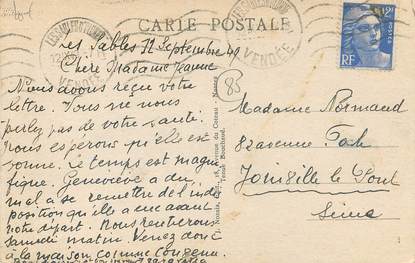 CARTE POSTALE
LES SABLES D'OLONNE
VENDÉE
12F
RF
POSTES
les Sables 12 Septembre 49
Chère Madame Jeanne
Nous avons reçu votre
lettre. Vous ne nous
parlez pas de votre santé.
Nous espérons qu'elle est
bonne. Le temps est magni
fique. Geneviève a du
mal a se remettre de l'indis
position qu'elle a eue avant
notre départ. Nous rentrerons
samedi matin. Venez donc
à la maison comme convenu.
83
Madame Normand
82 avenue
Joinville le Pont
Seine